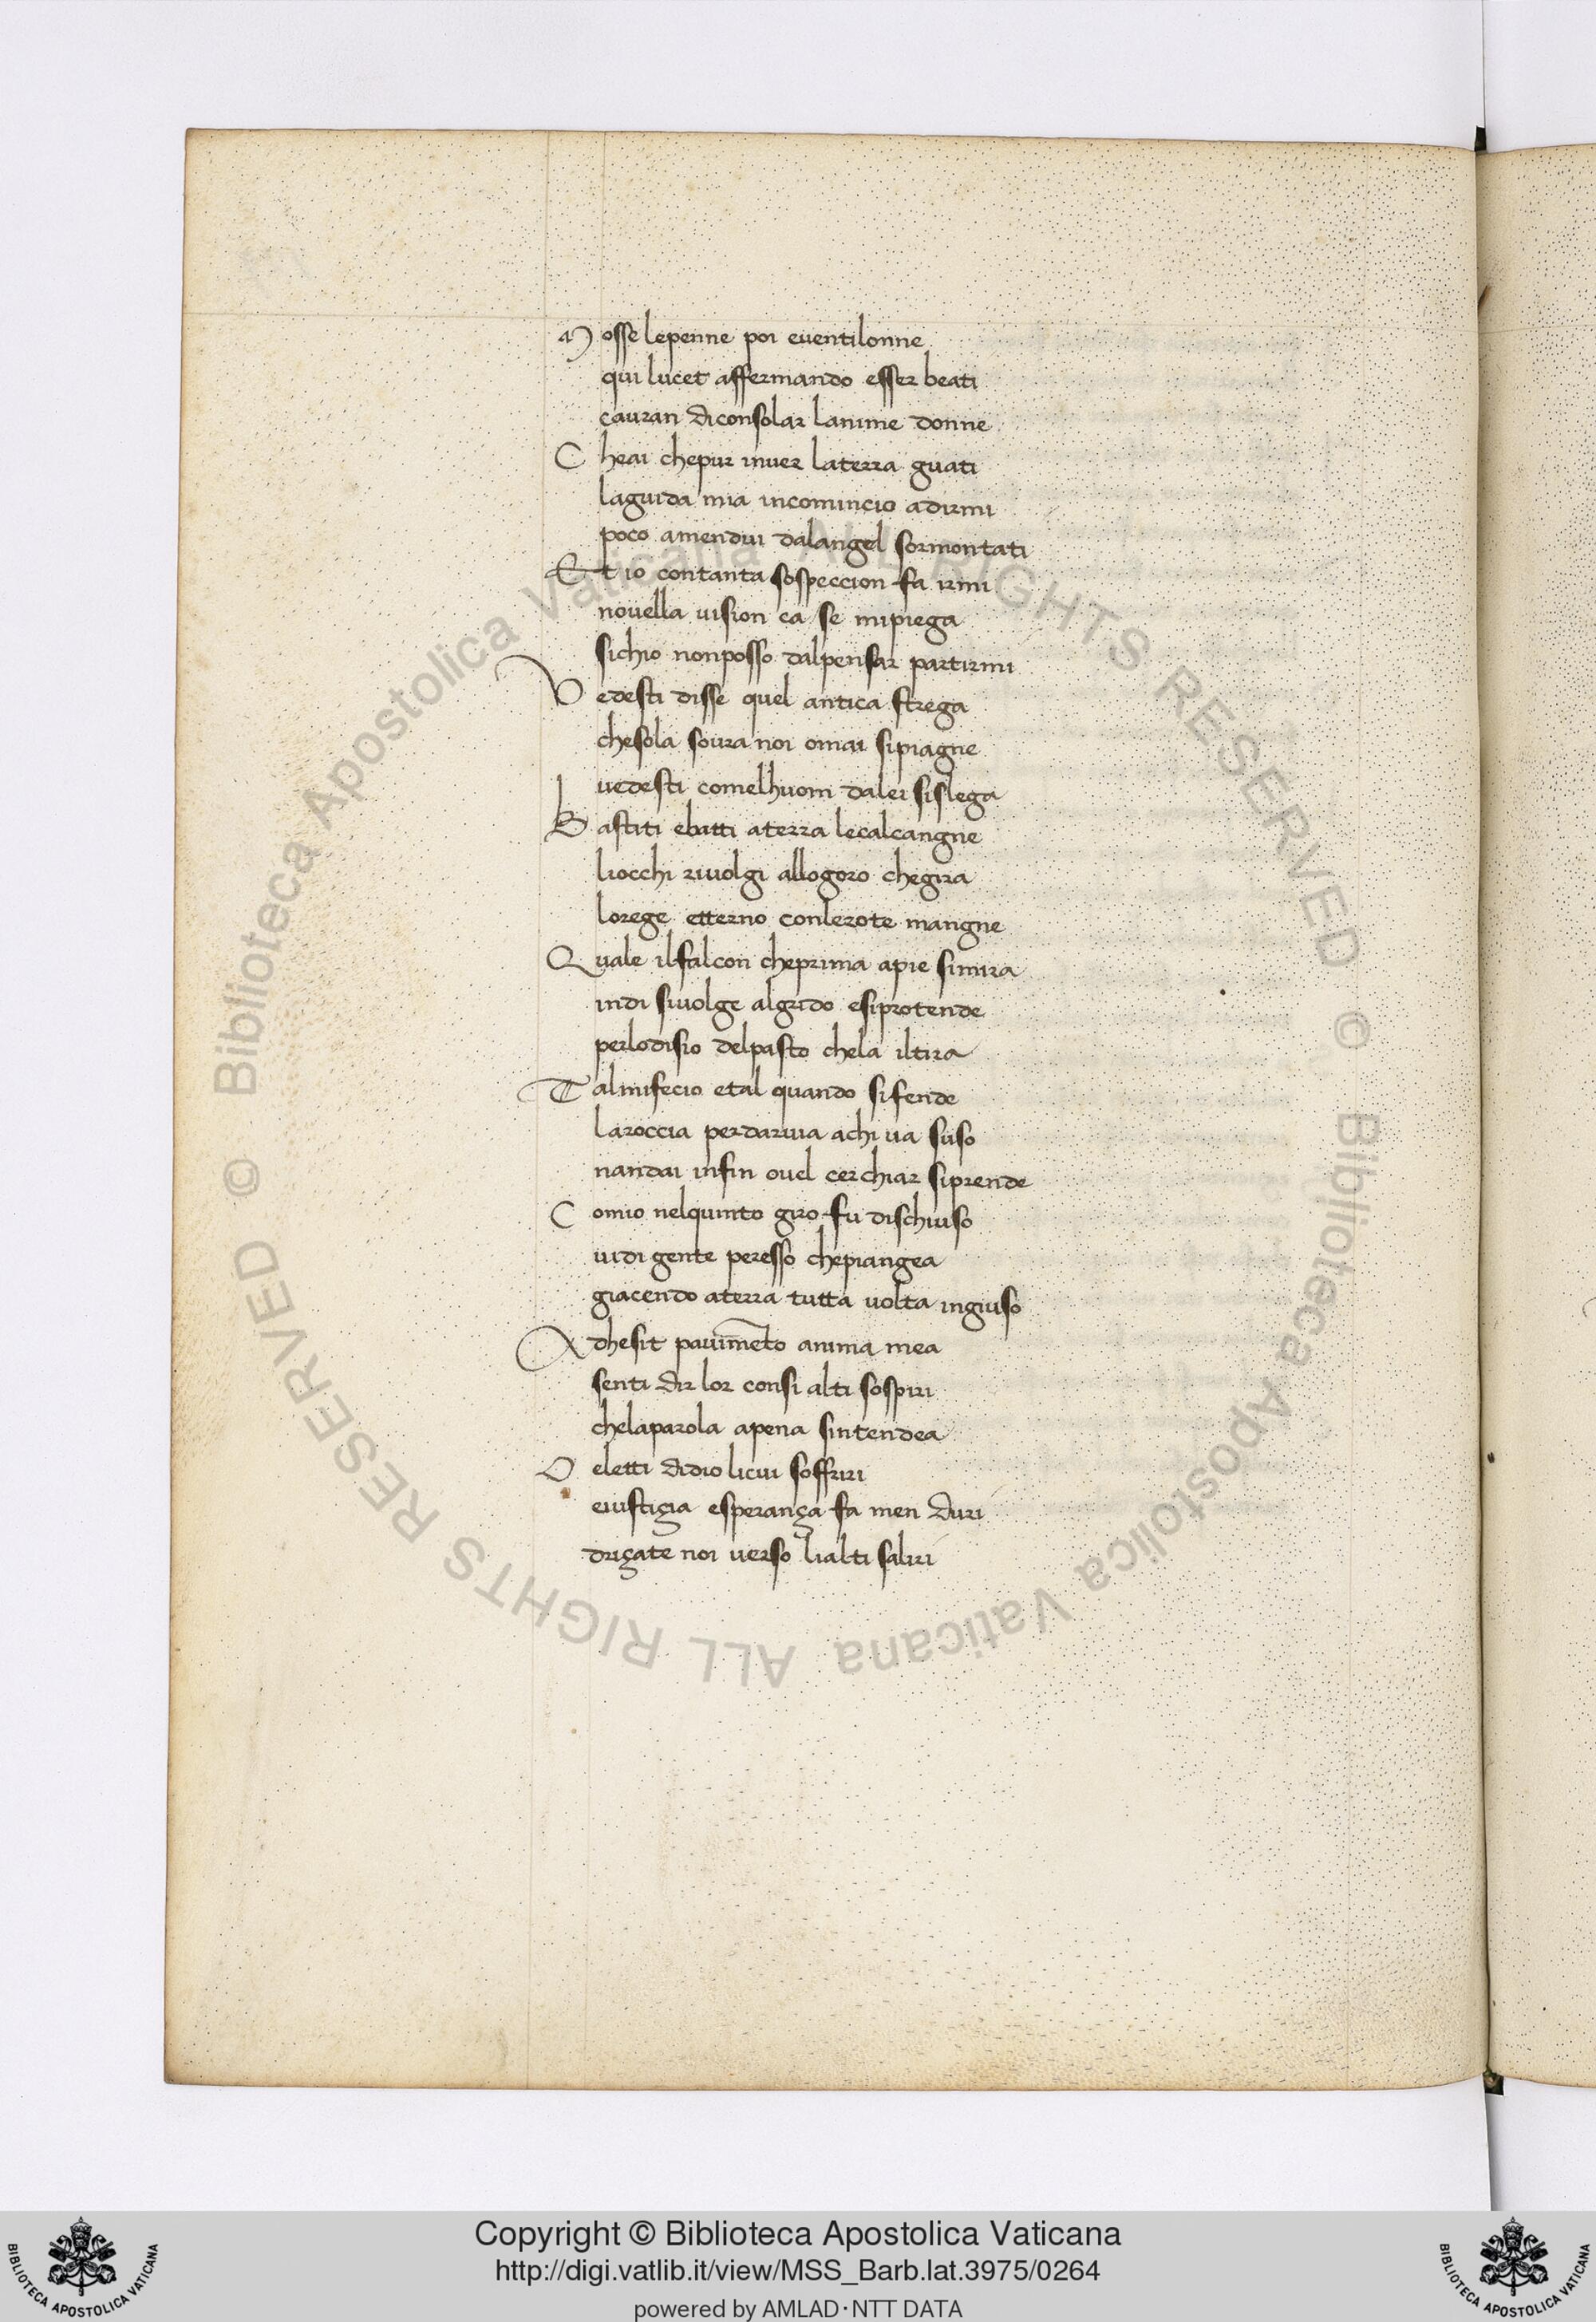 Mosse lepenne poi eventilonne
qui lucet affermando esser beati
cauran diconsolar lanime donne
Cheai chepur inver laterra guati
laguida mia incomincio adirmi
poco amendui dalangel sormontati
Et io contanta sospeccion fa irmi
novella vision ca se mipiega
sichio nonposso dalpensar partirmi
Vedesti disse quel antica strega
chesola soura noi omai sipiagne
vedesti comelhuom dalei sislega
Bastiti ebatti aterra lecalcangne
liocchi rivolgi allogoro chegira
lorege etterno conlerote mangne
Quale ilfalcon cheprima apie simira
indi sivolge algrido esiprotende
perlodisio delpasto chela iltira
Talmifecio etal quando sifende
laroccia perdarvia achi va suso
nandai infin ovel cerchiar siprende
Comio nelquinto giro fu dischiuso
vidi gente peresso chepiangea
giacendo aterra tutta volta ingiuso
Adhesit pavimēto anima mea
senti dir lor consi alti sospiri
chelaparola apena sintendea
O eletti didio licui soffriri
eiustiçia esperança fa men duri
driçate noi verso lialti saliri
© Biblioteca Apostolica Vaticana ALL RIGHTS RESERVED © Biblioteca Apostolica Vaticana ALL RIGHTS RESERVED
Copyright © Biblioteca Apostolica Vaticana
http://digi.vatlib.it/view/MSS_Barb.lat.3975/0264
powered by AMLAD·NTT DATA
BIBLIOTECA APOSTOLICA VATICANA
BIBLIOTECA APOSTOLICA VATICANA